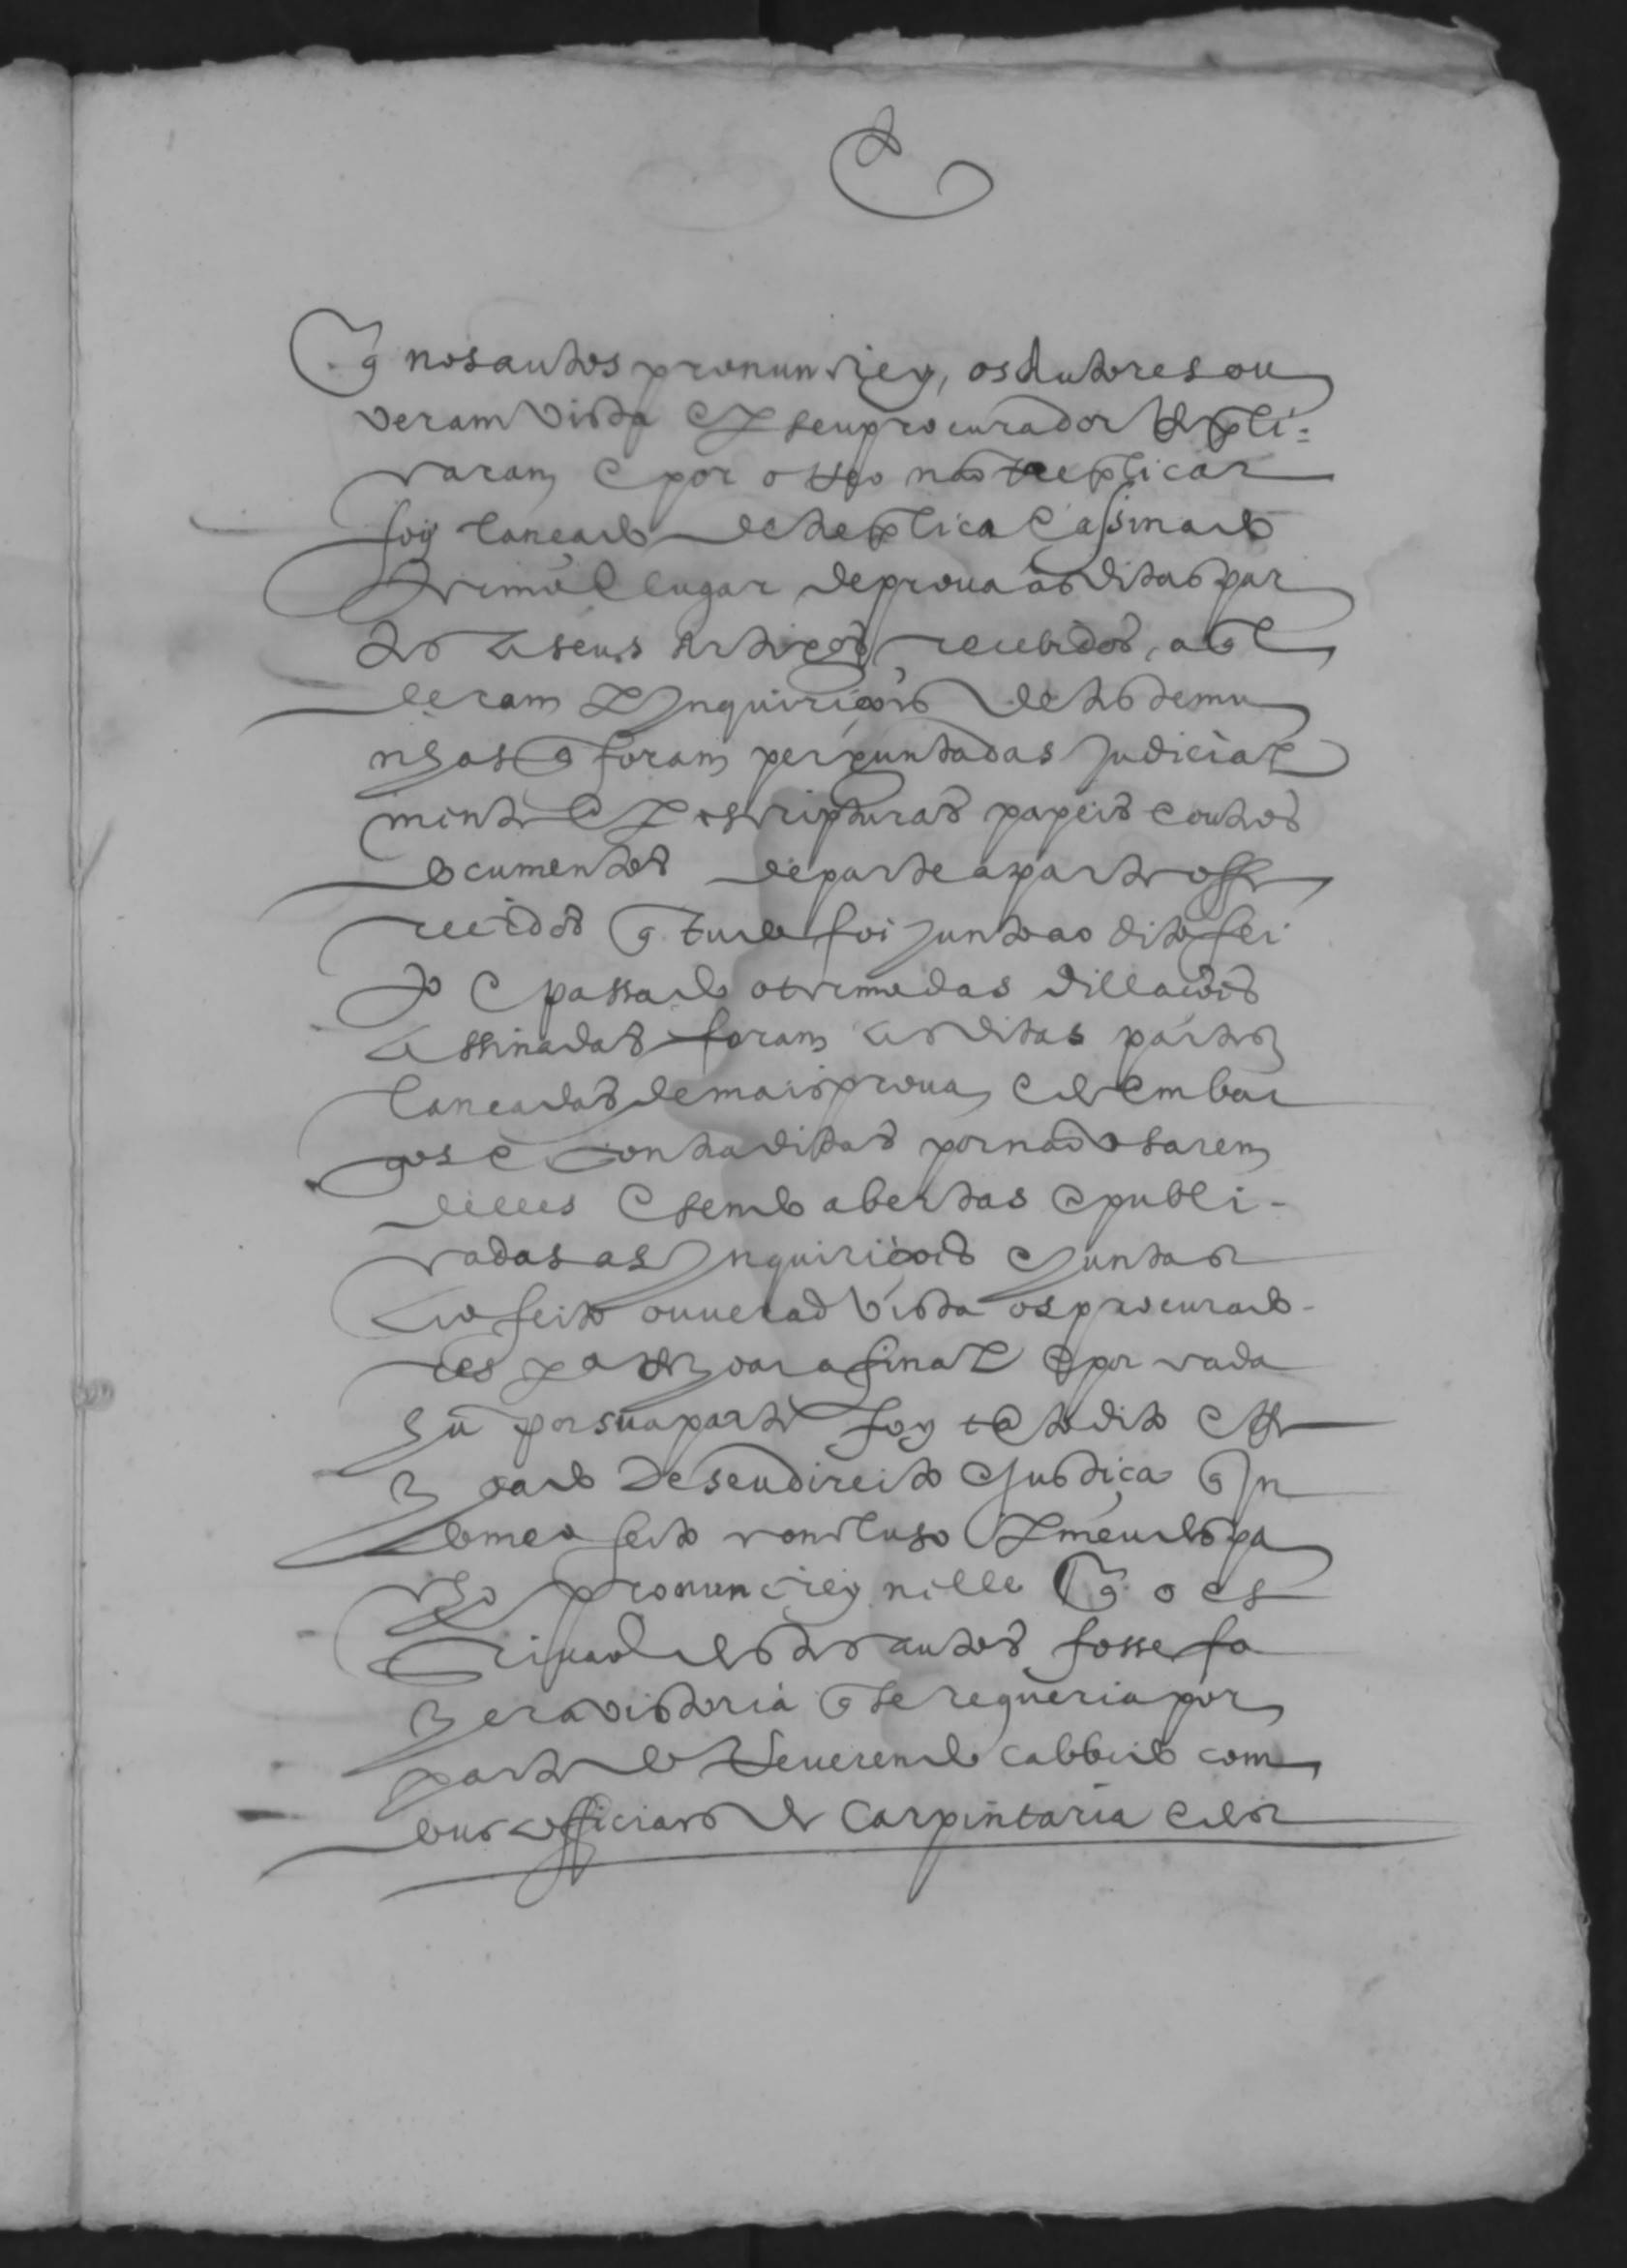 q̃ nos autos pronunciey, os Autores ou
veram vista e p seu procurador Repli=
caram e por o Reo não treplicar
foy lançado de treplica e asinado
termo e lugar de proua ás ditas par
tes a seus Artigos recebidos, a q̃
deram p Inquirições de testemu
nhas q̃ foram perguntadas Judicial
mente e p escripturas papeis e outros
documentos de parte a parte offe
recidos q̃ tudo foi junto ao dito fei
to e passado o termo das dillações
assinadas foram as ditas partes
lançadas de mais proua, e de embar
gos e contraditas por não vsarem
delles e sendo abertas e publi-
cadas as Inquirições e juntas
ao feito ouuerão vista os procurado-
res pa Rezoar a final e por cada
hũ por sua parte foy tãto dito e Re
zoado de seu direito e Justiça q̃ In
do me o feito concluso p meu despa
cho pronunciey nelle q̃ o es
criuão destes autos fosse fa
zer a vistoria q̃ se requeria por
parte do Reuerendo cabbido com
dous officiais de Carpintaria e dos